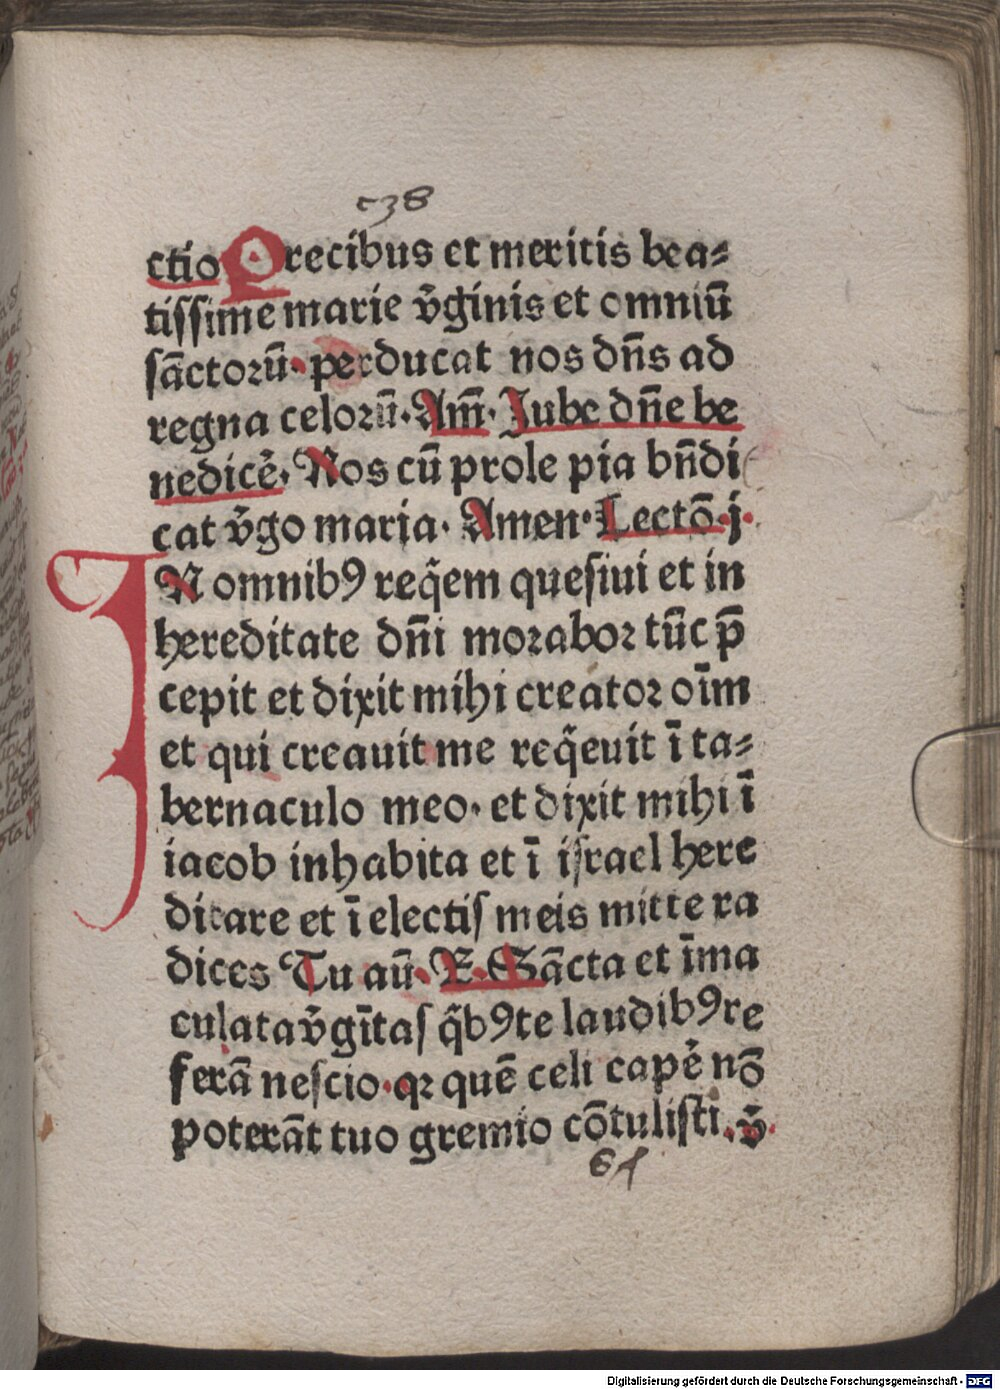 c38
ctio Precibus et meritis bea⸗
tissime marie v̄ginis et omniū
sāctoꝛū. perducat nos dn̄s ad
regna celoꝛū. Am̄. Iube dn̄e be
nedicē. Nos cū prole pia bn̄di
cat v̄go maria. Amen. Lectō. j.
IN omnibꝰ req̄em quesiui et in
hereditate dn̄i moꝛaboꝛ tūc p̄
cepit et dixit mihi creatoꝛ oīm
et qui creauit me req̄euit ī ta⸗
bernaculo meo. et dixit mihi ī
iacob inhabita et ī israel here
ditare et ī electis meis mitte ra
dices Tu aū. R. Sācta et īma
culata v̄gītas q̄bꝰ te laudibꝰ re
ferā nescio. qꝛ quē celi capē nō
poterāt tuo gremio cōtulisti. v̄
Digitalisierung gefördert durch die Deutsche Forschungsgemeinschaft - DFG